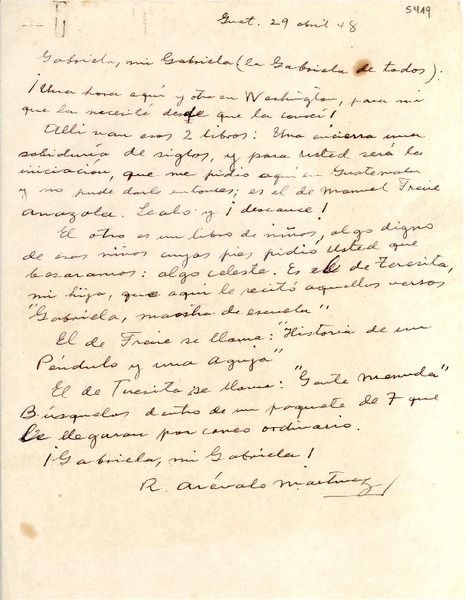 5419
Guat. 29 abril 48
Gabriela, mi Gabriela (la Gabriela de todos):
¡Una hora aquí y otra en Washington, para mi
que la necesité desde que la conocí!
Alli van esos 2 libros: Uno encierra una
sabiduría de siglos, y para usted será la
iniciación, que me pidio aquí en Guatemala
y no pude darle entonces; es el de Manuel Freire
Léalo y ¡descanse!
El otro es un libro de niños, algo digno
de esos niños cuyos pies pidió usted que
besaramos: algo celeste. Es el de Teresita,
mi hija, que aquí le recitó aquellos versos
"Gabriela, maestra de escuela"
El de Freire se llama: "Historia de un
Péndulo y una Aguja"
El de Teresita se llama: "Gente Menuda"
Búsquelos dentro de un paquete de 7 que
le llegaran por correo ordinario.
¡Gabriela, mi Gabriela!
R. Arévalo Martínez